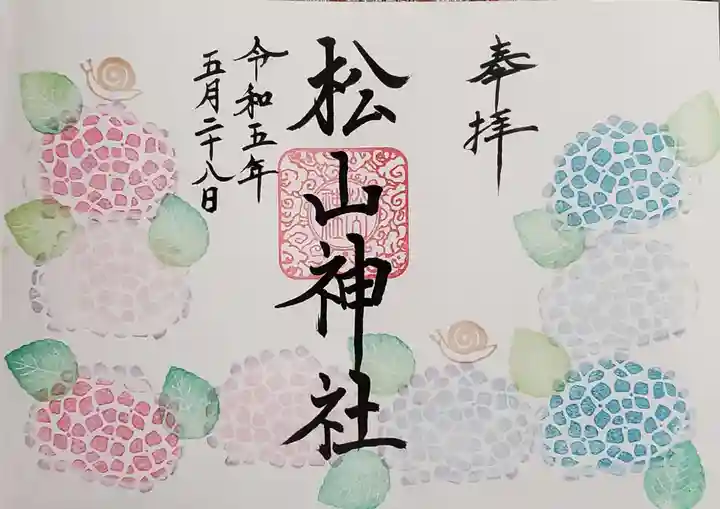 奉拝
松山神社
令和五年
五月二十八日